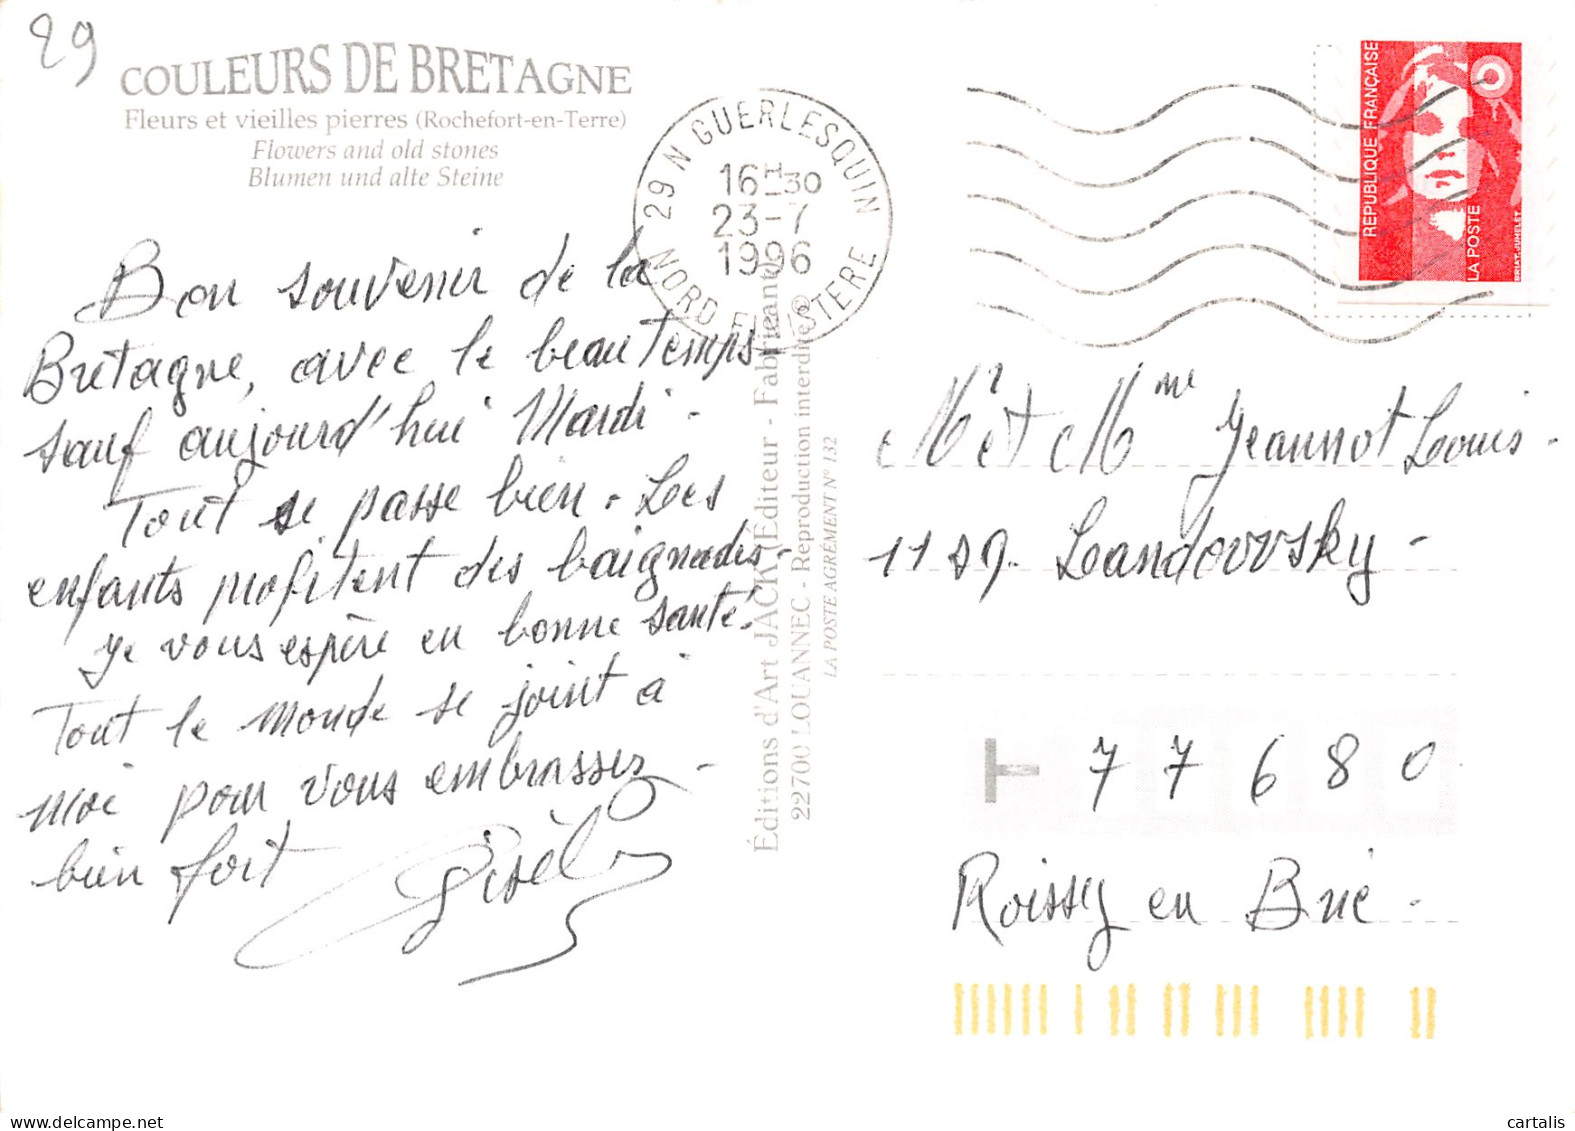 29
COULEURS DE BRETAGNE
Fleurs et vieilles pierres (Rochefort-en-Terre)
Flowers and old stones
Blumen und alte Steine
29 N GUERLESQUIN
16H-30
23-7
1996
NORD FINISTERE
REPUBLIQUE FRANÇAISE
LA POSTE
BRIAT-JUMELET
Bon souvenir de la
Bretagne, avec le beau temps
sauf aujourd'hui Mardi.
Tout se passe bien. Les
enfants profitent des baignades.
Je vous espère en bonne santé.
Tout le monde se joint à
moi pour vous embrasser
bien fort
Gisèle
Éditions d'Art JACK (Éditeur - Fabricant)
22700 LOUANNEC - Reproduction interdite ©
LA POSTE AGRÉMENT N° 132
Mr et Mme Jeannot Louis.
11 Landovvsky -
77680
Roissy en Brie.
cartalis